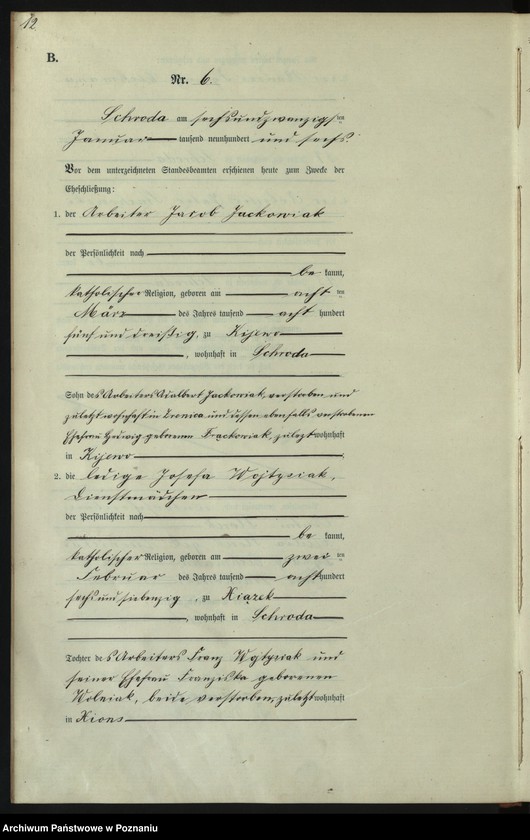 12
B.
Nr. 6.
Schroda am sechsundzwanzigsten
Januar tausend neunhundert und sechs.
Vor dem unterzeichneten Standesbeamten erschienen heute zum Zwecke der
Eheschließung:
1. der Arbeiter Jacob Jackowiak
der Persönlichkeit nach
be kannt,
katholischer Religion, geboren am acht ten
März des Jahres tausend acht hundert
fünf und dreißig, zu Kijewo
, wohnhaft in Schroda
Sohn des Arbeiters Adalbert Jackowiak, verstorben und
zuletzt wohnhaft in und dessen ebenfalls verstorbenen
Ehefrau Hedwig geborenen Frackowiak, zuletzt wohnhaft
in Kijewo
2. die ledige Josefa Wojtysiak,
Dienstmädchen
der Persönlichkeit nach
be kannt,
katholischer Religion, geboren am zwei ten
Februar des Jahres tausend acht hundert
sechs und siebenzig, zu Xiązek
, wohnhaft in Schroda
Tochter des Arbeiters Franz Wojtysiak und
seiner Ehefrau Franziska geborenen
Wolniak, beide verstorben, zuletzt wohnhaft
in Xions
Archiwum Państwowe w Poznaniu